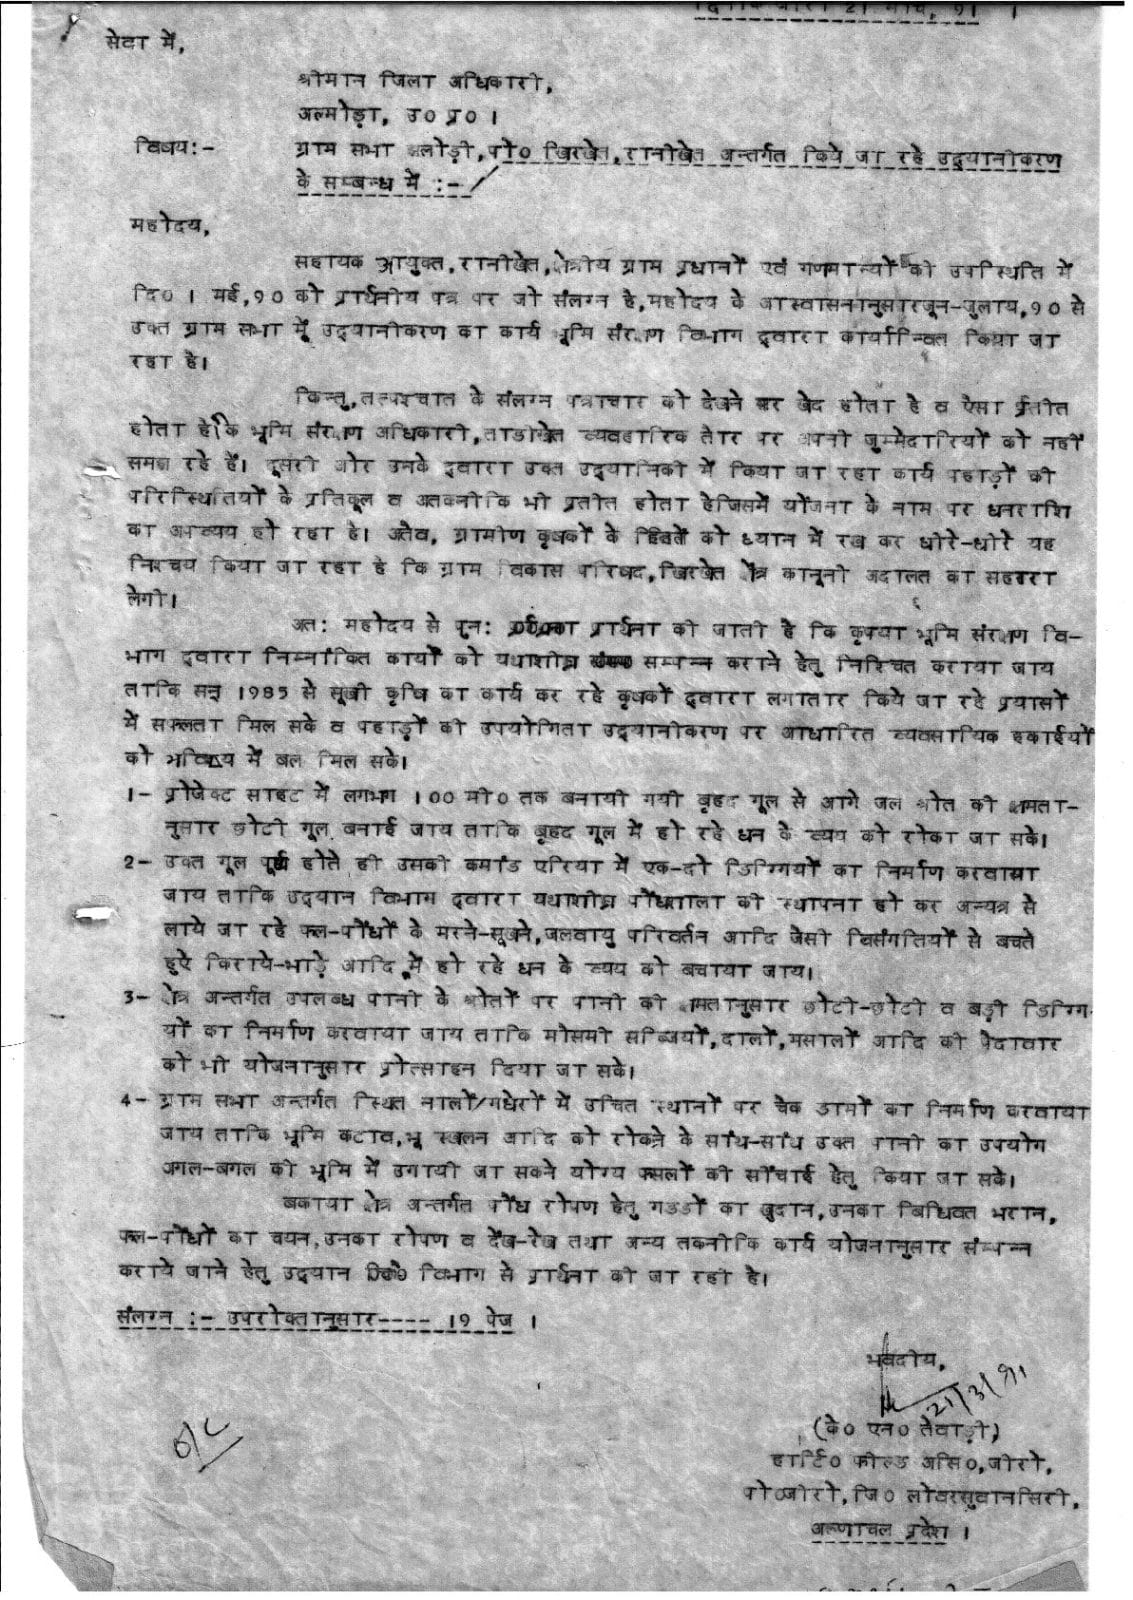 दिनांक जीरो 21 मार्च, 91 ।
सेवा में,
श्रीमान जिला अधिकारी,
अल्मोड़ा, उ0 प्र0 ।
विषय:- ग्राम सभा पो0 खिरखेत, रानीखेत अन्तर्गत किये जा रहे उद्यानीकरण
के सम्बन्ध में :-
महोदय,
सहायक आयुक्त, रानीखेत, क्षेत्रीय ग्राम प्रधानों एवं गणमान्यों की उपस्थिति में
दि0 1 मई, 90 को प्रार्थनीय पत्र पर जो संलग्न है, महोदय के आस्वासनानुसार जून-जुलाय, 90 से
उक्त ग्राम सभा में उद्यानीकरण का कार्य भूमि संरक्षण विभाग द्वारा कार्यान्वित किया जा
रहा है।
किन्तु, तत्पश्चात के संलग्न पत्राचार को देखने पर खेद होता है व ऐसा प्रतीत
होता है कि भूमि संरक्षण अधिकारी, ताडीखेत व्यवहारिक तौर पर अपनी जुम्मेदारियों को नहीं
समझ रहे हैं। दूसरी ओर उनके द्वारा उक्त उद्यानिकी में किया जा रहा कार्य पहाड़ों की
परिस्थितियों के प्रतिकूल व अतकनीकि भी प्रतीत होता है जिसमें योजना के नाम पर धनराशि
का अपव्यय हो रहा है। अतेव, ग्रामीण कृषकों के हितों को ध्यान में रख कर धीरे-धीरे यह
निश्चय किया जा रहा है कि ग्राम विकास परिषद, खिरखेत क्षेत्र कानूनी अदालत का सहारा
लेगी।
अत: महोदय से पुन: प्रार्थना की जाती है कि कृपया भूमि संरक्षण वि-
भाग द्वारा निम्नांकित कार्यों को यथाशीघ्र सम्पन्न कराने हेतु निश्चित कराया जाय
ताकि सन् 1985 से सूखी कृषि का कार्य कर रहे कृषकों द्वारा लगातार किये जा रहे प्रयासों
में सफलता मिल सके व पहाड़ों की उपयोगिता उद्यानीकरण पर आधारित व्यवसायिक इकाईयों
को भविष्य में बल मिल सके।
1- प्रोजेक्ट साइट में लगभग 100 मी0 तक बनायी गयी बृहद गूल से आगे जल श्रोत की क्षमता-
नुसार छोटी गूल बनाई जाय ताकि बृहद गूल में हो रहे धन के व्यय को रोका जा सके।
2- उक्त गूल पूर्ण होते ही उसकी कमांड एरिया में एक-दो डिग्गियों का निर्माण करवाया
जाय ताकि उद्यान विभाग द्वारा यथाशीघ्र पौधशाला की स्थापना हो कर अन्यत्र से
लाये जा रहे फल-पौधों के मरने-सूखने, जलवायु परिवर्तन आदि जैसी विसंगतियों से बचते
हुऐ किराये-भाड़े आदि में हो रहे धन के व्यय को बचाया जाय।
3- क्षेत्र अन्तर्गत उपलब्ध पानी के श्रोतों पर पानी की क्षमतानुसार छोटी-छोटी व बड़ी डिग्गि-
यों का निर्माण करवाया जाय ताकि मोसमी सब्जियों, दालों, मसालों आदि की पैदावार
को भी योजनानुसार प्रोत्साहन दिया जा सके।
4- ग्राम सभा अन्तर्गत स्थित नालों/गधेरों में उचित स्थानों पर चेक डामों का निर्माण करवाया
जाय ताकि भूमि कटाव, भू स्खलन आदि को रोकने के सांथ-सांथ उक्त पानी का उपयोग
अगल-बगल की भूमि में उगायी जा सकने योग्य फसलों की सींचाई हेतु किया जा सके।
बकाया क्षेत्र अन्तर्गत पौध रोपण हेतु गडडों का खुदान, उनका बिधिवत भरान,
फल-पौधों का चयन, उनका रोपण व देंख-रेख तथा अन्य तकनीकि कार्य योजनानुसार सम्पन्न
कराये जाने हेतु उद्यान विभाग से प्रार्थना की जा रही है।
संलग्न :- उपरोक्तानुसार---- 19 पेज ।
भवदीय,
21/3/91
(के0 एन0 तेवाड़ी)
हार्टि0 फील्ड असि0, जीरो,
पो0जीरो, जि0 लोवरसुवानसिरी,
अरूणाचल प्रदेश ।
o/c